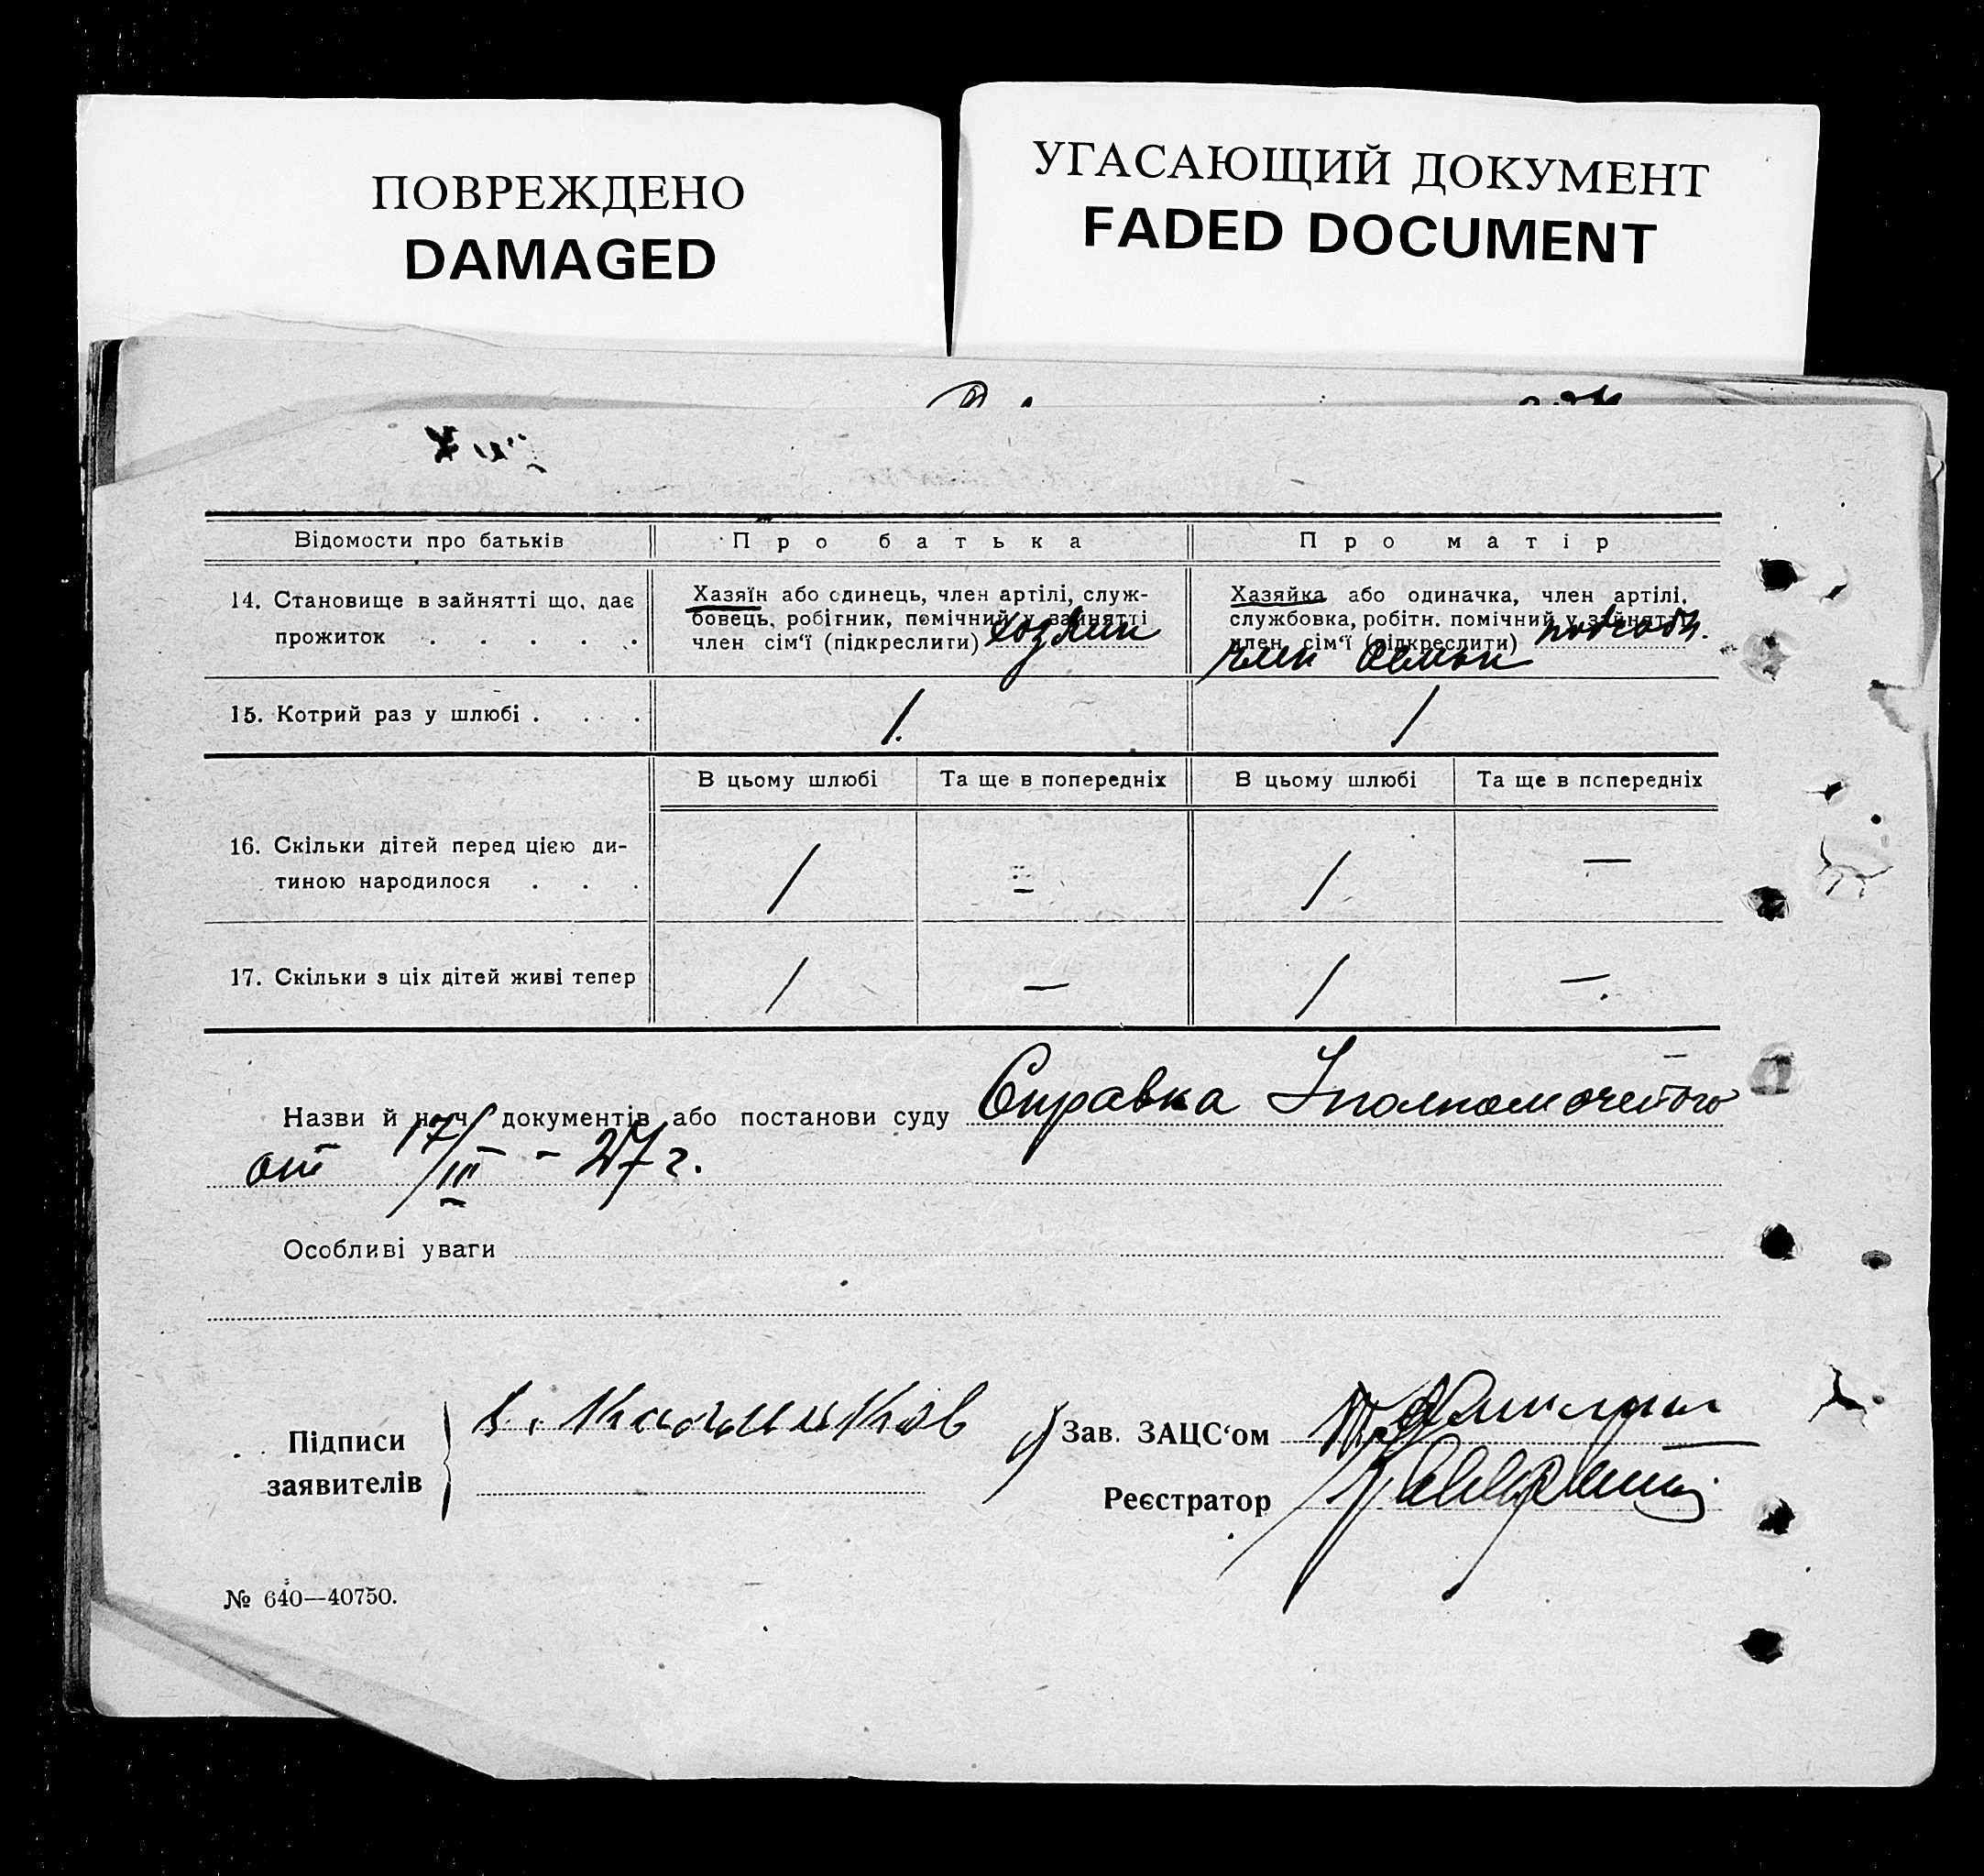 ПОВРЕЖДЕНО
DAMAGED
УГАСАЮЩИЙ ДОКУМЕНТ
FADED DOCUMENT
Відомости про батьків
Про батька
Про матір
14. Становище в зайнятті що, дає
прожиток . . . . .
Хазяїн або одинець, член артілі, служ-
бовець, робітник, помічний у зайнятті
член сім'ї (підкреслити) хозяин
Хазяйка або одиначка, член артілі,
службовка, робітн. помічний у зайнятті
член сім'ї (підкреслити)
член семьи
15. Котрий раз у шлюбі . . . .
1.
1
В цьому шлюбі
Та ще в попередніх
В цьому шлюбі
Та ще в попередніх
16. Скільки дітей перед цією ди-
тиною народилося . . .
1
—
1
—
17. Скільки з ціх дітей живі тепер
1
—
1
—.
Назви й н-ч. документів або постанови суду Справка
от 17/III - 27 г.
Особливі уваги
Підписи
заявителів
Зав. ЗАЦС'ом
Реєстратор
№ 640—40750.